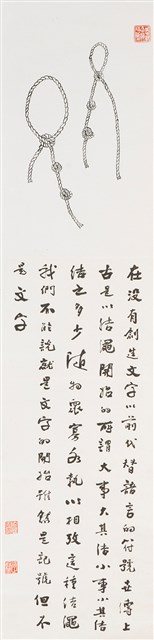 在没有創造文字以前代替語言的符號在傳上
古是以結繩開始的所謂大事大其結小事小其結
結之多少随物眾寡各執以相攷這種結繩
我們不能說就是文字的開始雖然是記號但不
是文字